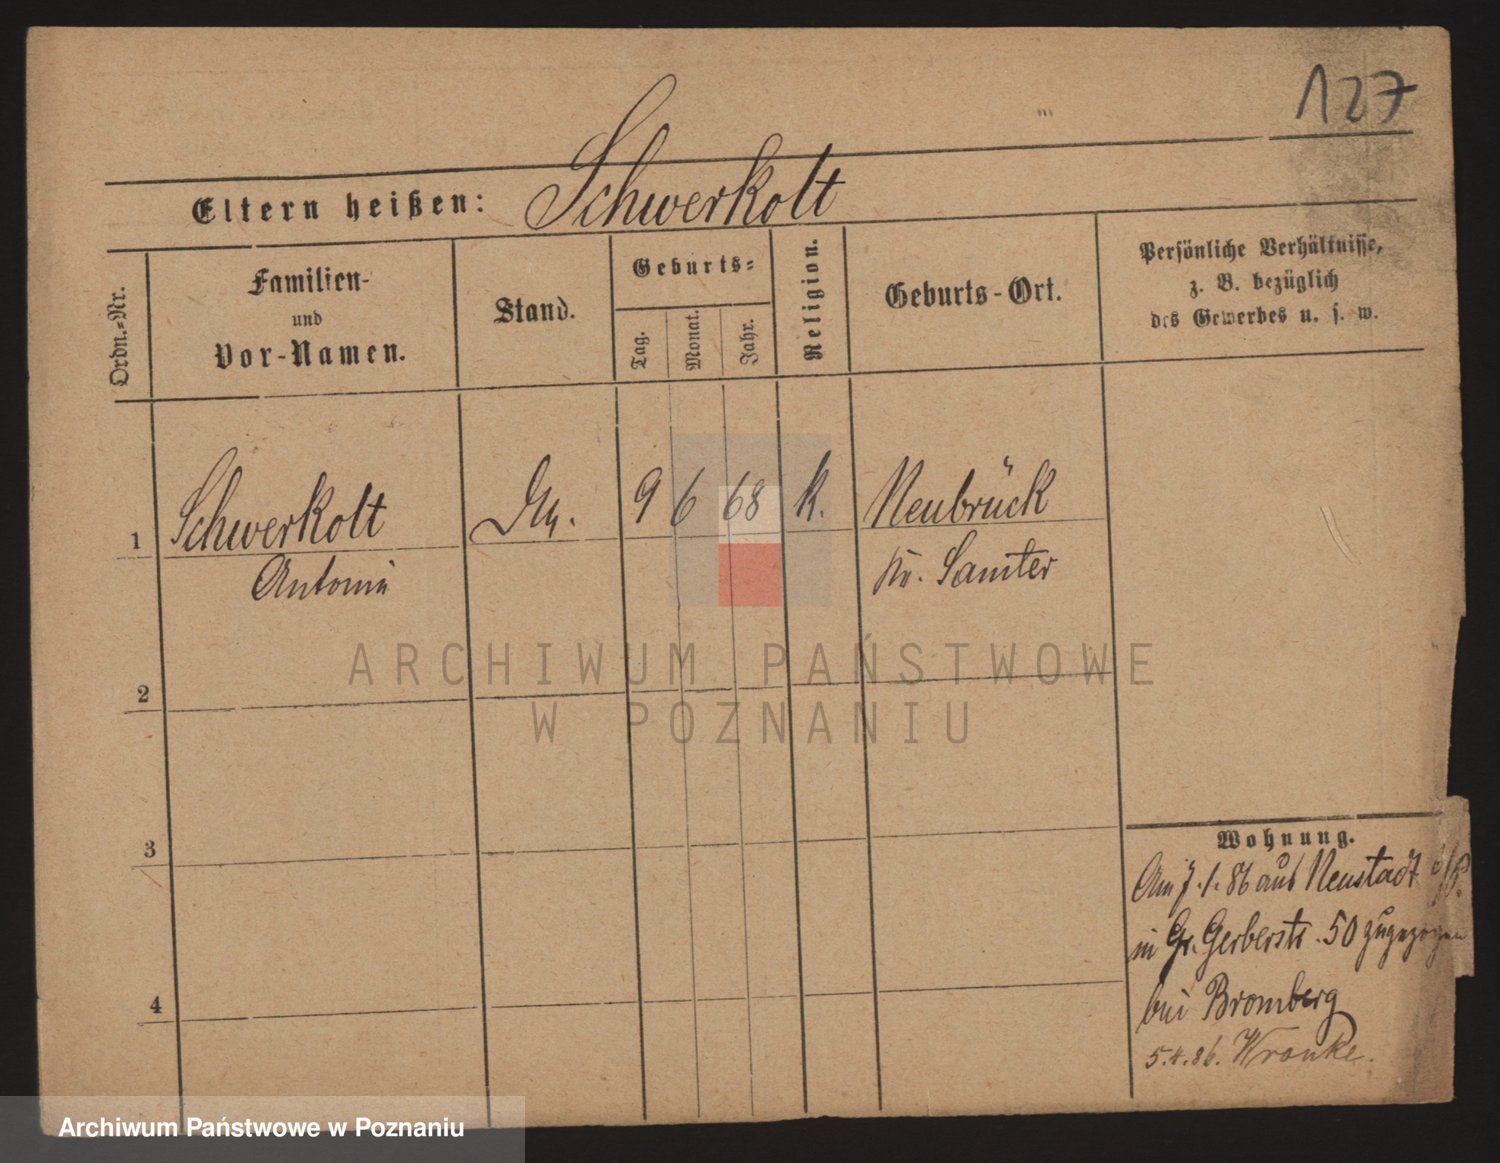 127
Eltern heißen: Schwerkolt
Ordn.-Nr.
Familien-
und
Vor-Namen.
Stand.
Geburts-
Tag.
Monat.
Jahr.
Religion.
Geburts-Ort.
Persönliche Verhältnisse,
z. B. bezüglich
des Gewerbes u. s. w.
1 Schwerkolt 9 6 68 k. Neubrück
Antonie Kr. Samter
2
3
4
Wohnung.
Am 7.1.86 aus Neustadt
in Gr. Gerberstr. 50 zugezogen
bei Bromberg
5.4.86. Wronke.
ARCHIWUM PAŃSTWOWE
W POZNANIU
Archiwum Państwowe w Poznaniu